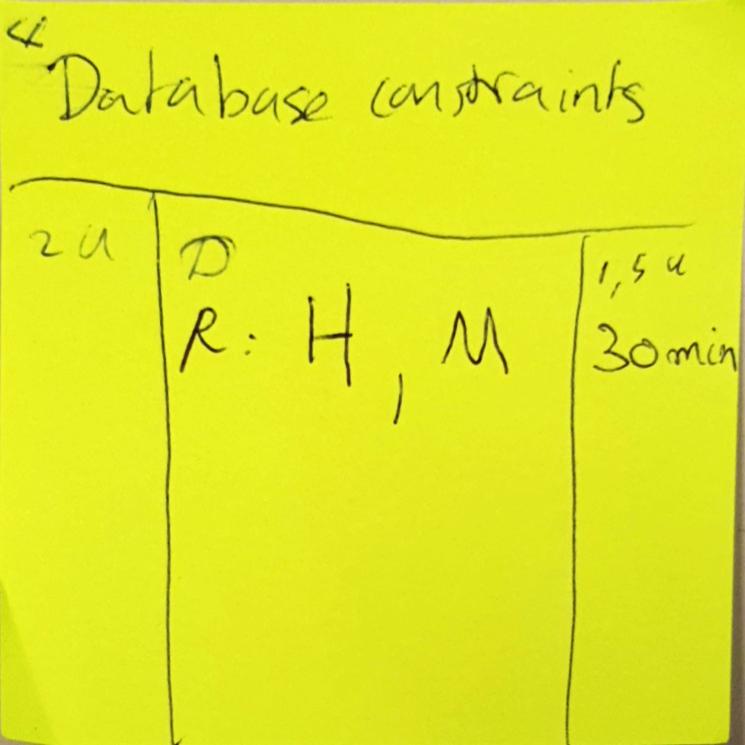 4
Database constraints
2 u
D
R: H, M
1,5 u
30min